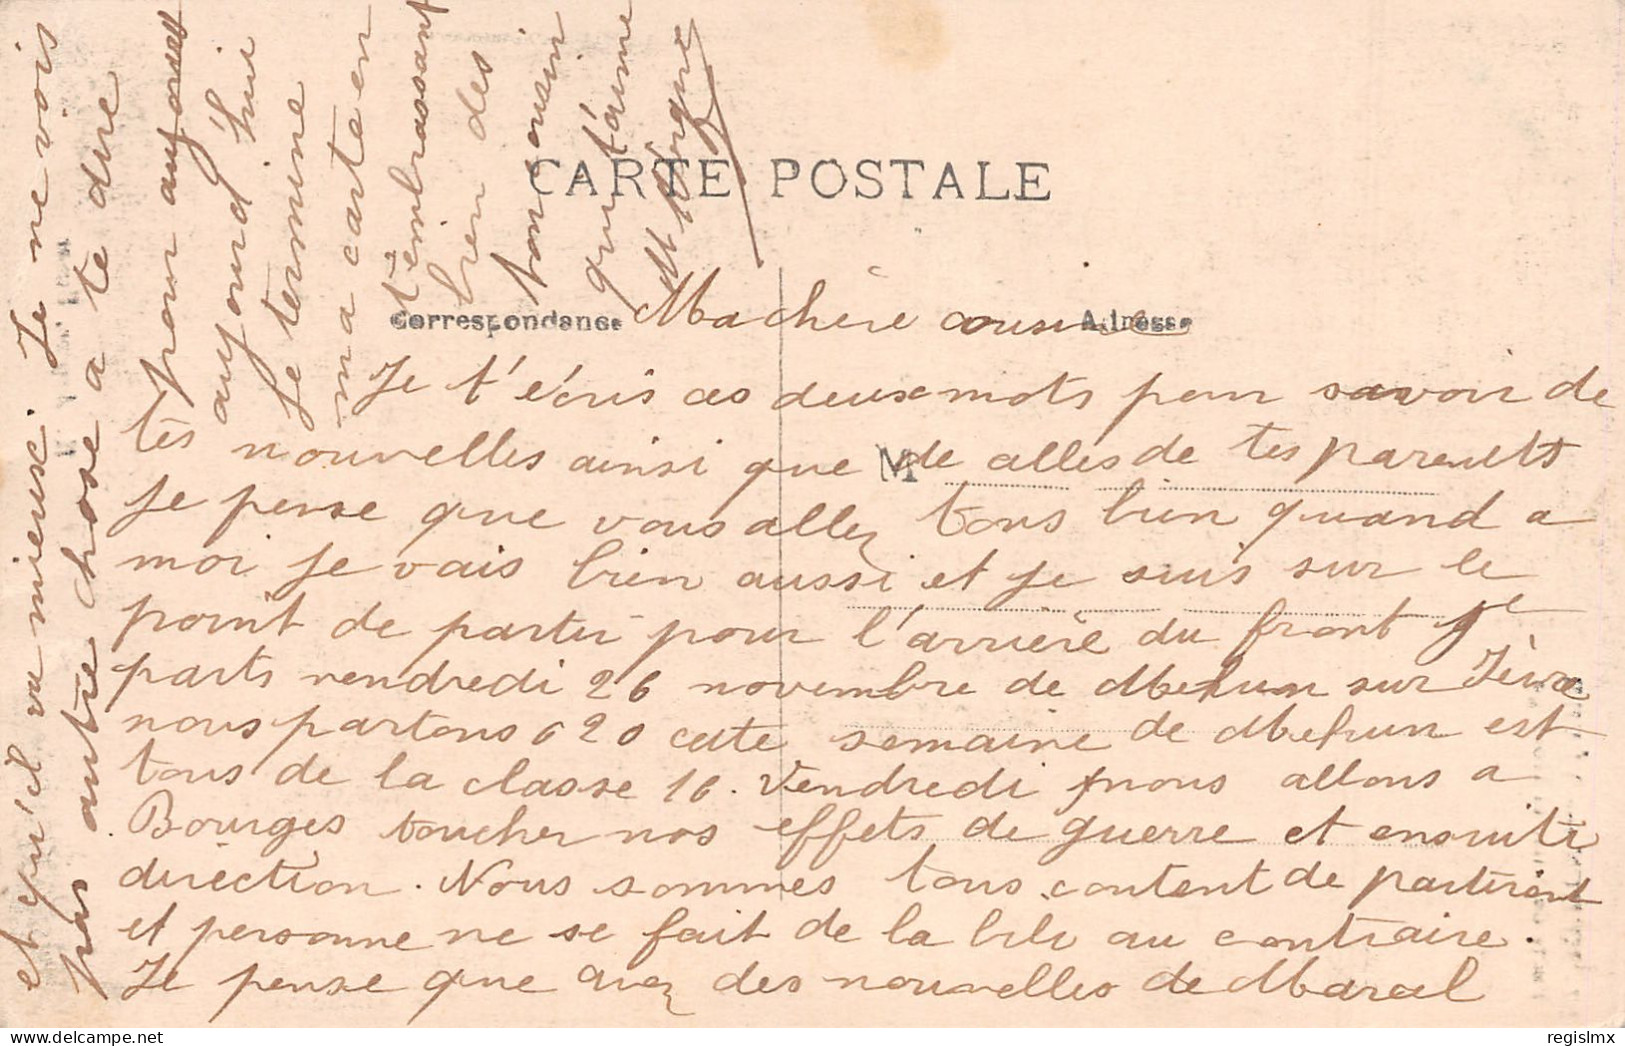 CARTE POSTALE
Correspondance
Adresse
Ma chère cousine
Je t'écris ces deux mots pour savoir de
tes nouvelles ainsi que de alles de tes parents
M
Je pense que vous allez tous bien quand a
moi je vais bien aussi et je suis sur le
point de partir pour l'arrière du front je
parts vendredi 26 novembre de Mehun sur Yèvre
nous partons 620 cette semaine de Mehun est
tous de la classe 16. Vendredi nous allons a
Bourges toucher nos effets de guerre et ensuite
direction. Nous sommes tous content de partir
et personne ne se fait de la bile au contraire.
Je pense que avez des nouvelles de Marcel
et qu'il va mieux. Je ne vois
pas autre chose a te dire
pour
aujourd'hui
Je termine
ma carte en
t'embrassant
bien des
ton cousin
qui t'aime